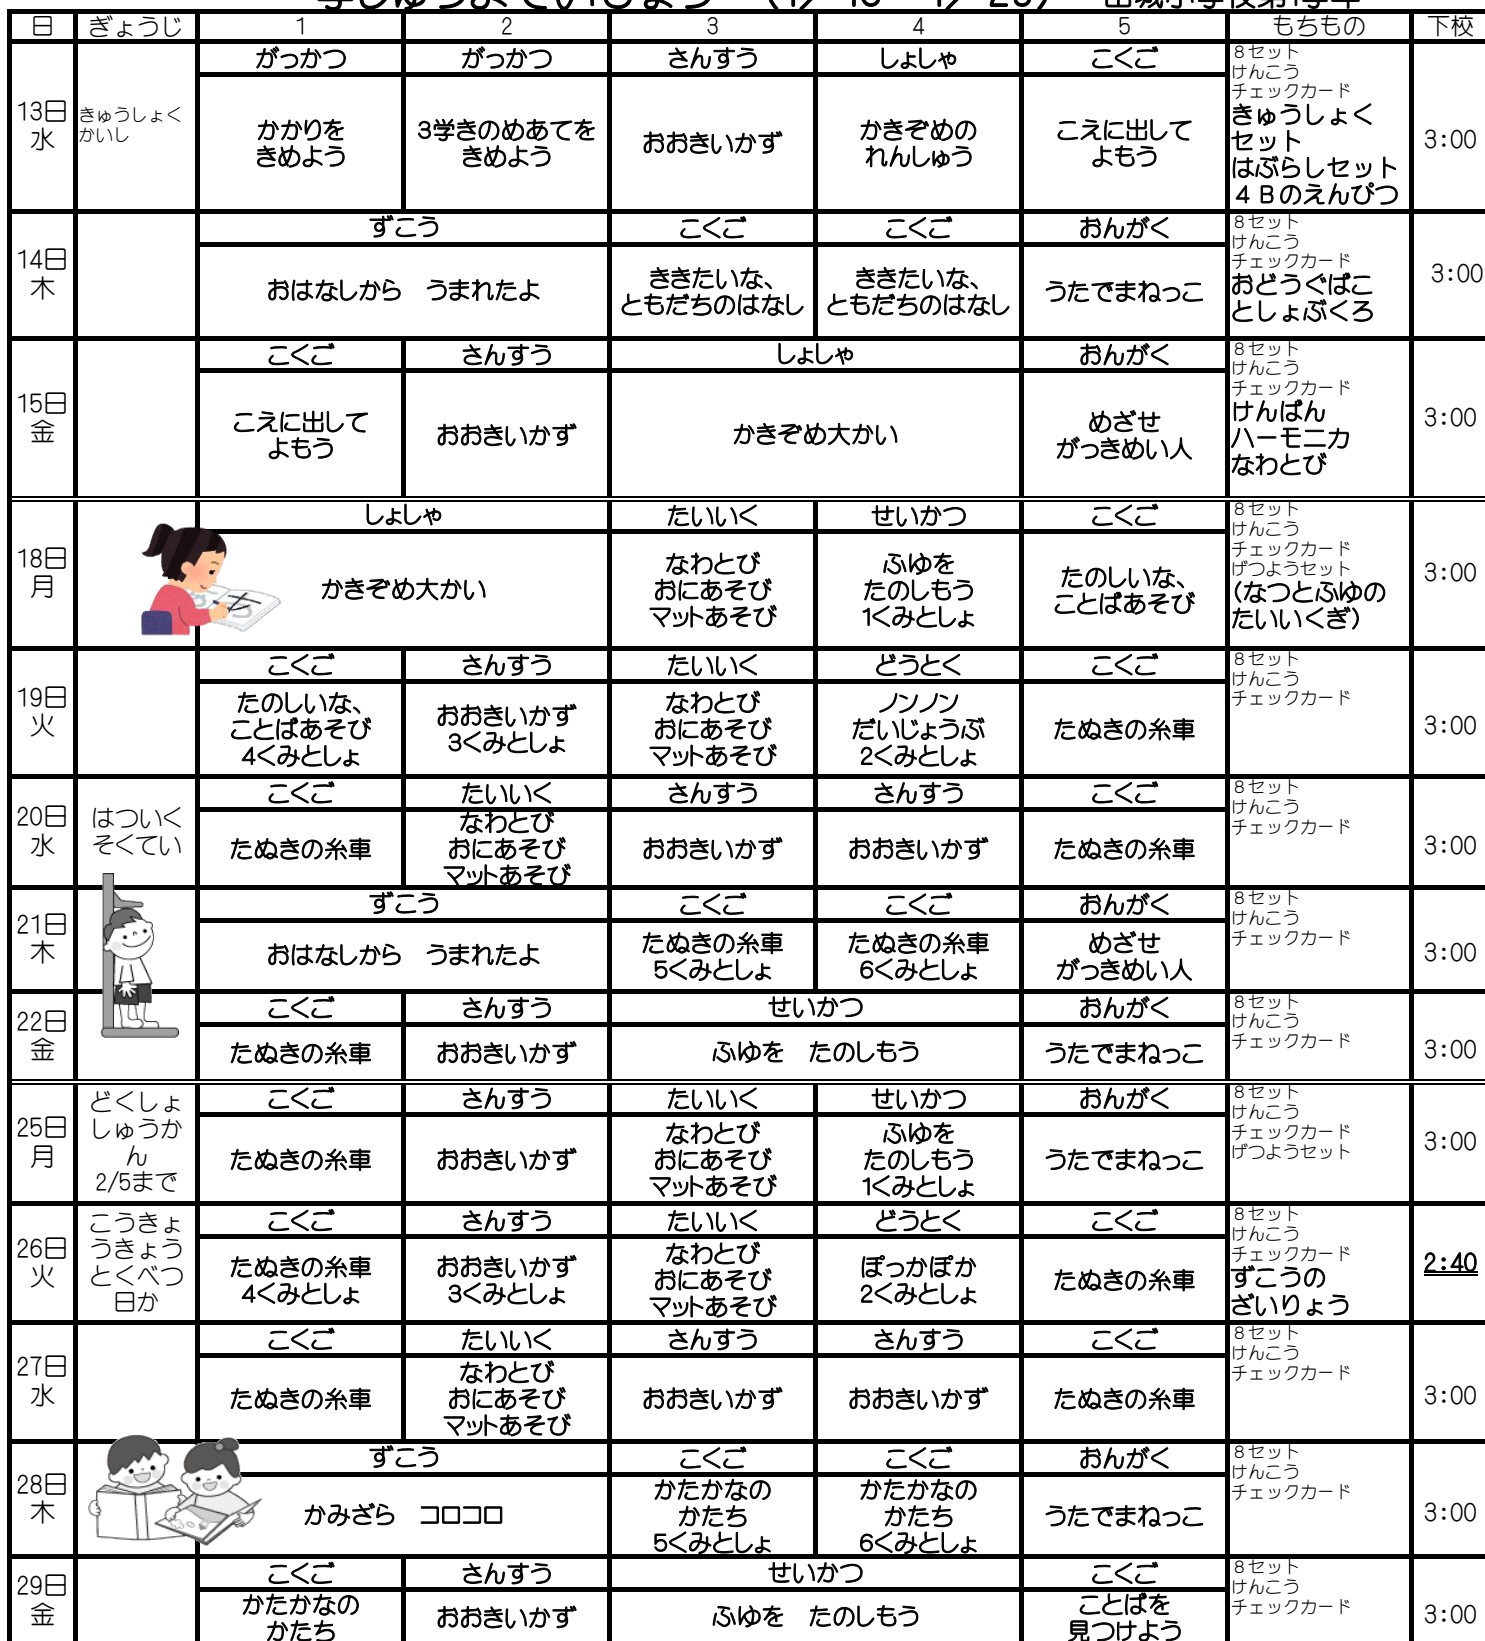 日 ぎょうじ 1 2 3 4 5 もちもの 下校
13日
水
きゅうしょく
かいし
がっかつ
かかりを
きめよう
がっかつ
3学きのめあてを
きめよう
さんすう
おおきいかず
しょしゃ
かきぞめの
れんしゅう
こくご
こえに出して
よもう
8セット
けんこう
チェックカード
きゅうしょく
セット
はぶらしセット
4Bのえんぴつ
3:00
14日
木
ずこう
おはなしから うまれたよ
こくご
ききたいな、
ともだちのはなし
こくご
ききたいな、
ともだちのはなし
おんがく
うたでまねっこ
8セット
けんこう
チェックカード
おどうぐばこ
としょぶくろ
3:00
15日
金
こくご
こえに出して
よもう
さんすう
おおきいかず
しょしゃ
かきぞめ大かい
おんがく
めざせ
がっきめい人
8セット
けんこう
チェックカード
けんばん
ハーモニカ
なわとび
3:00
18日
月
しょしゃ
かきぞめ大かい
たいいく
なわとび
おにあそび
マットあそび
せいかつ
ふゆを
たのしもう
1くみとしょ
こくご
たのしいな、
ことばあそび
8セット
けんこう
チェックカード
げつようセット
(なつとふゆの
たいいくぎ)
3:00
19日
火
こくご
たのしいな、
ことばあそび
4くみとしょ
さんすう
おおきいかず
3くみとしょ
たいいく
なわとび
おにあそび
マットあそび
どうとく
ノンノン
だいじょうぶ
2くみとしょ
こくご
たぬきの糸車
8セット
けんこう
チェックカード
3:00
20日
水
はついく
そくてい
こくご
たぬきの糸車
たいいく
なわとび
おにあそび
マットあそび
さんすう
おおきいかず
さんすう
おおきいかず
こくご
たぬきの糸車
8セット
けんこう
チェックカード
3:00
21日
木
ずこう
おはなしから うまれたよ
こくご
たぬきの糸車
5くみとしょ
こくご
たぬきの糸車
6くみとしょ
おんがく
めざせ
がっきめい人
8セット
けんこう
チェックカード
3:00
22日
金
こくご
たぬきの糸車
さんすう
おおきいかず
せいかつ
ふゆを たのしもう
おんがく
うたでまねっこ
8セット
けんこう
チェックカード
3:00
25日
月
どくしょ
しゅうか
ん
2/5まで
こくご
たぬきの糸車
さんすう
おおきいかず
たいいく
なわとび
おにあそび
マットあそび
せいかつ
ふゆを
たのしもう
1くみとしょ
おんがく
うたでまねっこ
8セット
けんこう
チェックカード
げつようセット
3:00
26日
火
こうきょ
うきょう
とくべつ
日か
こくご
たぬきの糸車
4くみとしょ
さんすう
おおきいかず
3くみとしょ
たいいく
なわとび
おにあそび
マットあそび
どうとく
ぽっかぽか
2くみとしょ
こくご
たぬきの糸車
8セット
けんこう
チェックカード
ずこうの
ざいりょう
2:40
27日
水
こくご
たぬきの糸車
たいいく
なわとび
おにあそび
マットあそび
さんすう
おおきいかず
さんすう
おおきいかず
こくご
たぬきの糸車
8セット
けんこう
チェックカード
3:00
28日
木
ずこう
かみざら コロコロ
こくご
かたかなの
かたち
5くみとしょ
こくご
かたかなの
かたち
6くみとしょ
おんがく
うたでまねっこ
8セット
けんこう
チェックカード
3:00
29日
金
こくご
かたかなの
かたち
さんすう
おおきいかず
せいかつ
ふゆを たのしもう
こくご
ことばを
見つけよう
8セット
けんこう
チェックカード
3:00